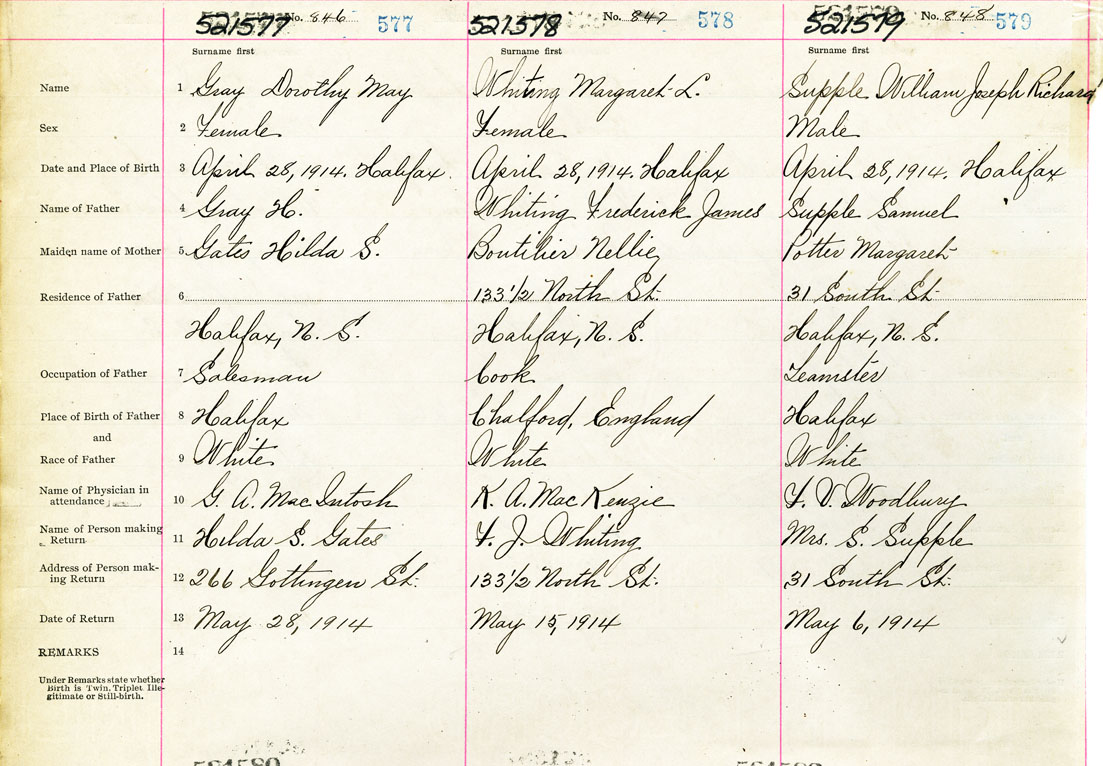 521577 No. 846 577 521578 No. 847 578 521579 No. 848 579
Surname first Surname first Surname first
Name 1 Gray Dorothy May Whiting Margaret L. Supple William Joseph Richard
Sex 2 Female Female Male
Date and Place of Birth 3 April 28, 1914. Halifax. April 28, 1914. Halifax April 28, 1914. Halifax
Name of Father 4 Gray H. Whiting Frederick James Supple Samuel
Maiden name of Mother 5 Gates Hilda S. Boutilier Nellie Potter Margaret
Residence of Father 6 133 1/2 North St. 31 South St.
Halifax, N. S. Halifax, N. S. Halifax, N. S.
Occupation of Father 7 Salesman Cook Teamster
Place of Birth of Father 8 Halifax Chalford, England Halifax
and
Race of Father 9 White White White
Name of Physician in
attendance 10 G. A. MacIntosh K. A. MacKenzie F. V. Woodbury
Name of Person making
Return 11 Hilda S. Gates F. J. Whiting Mrs. S. Supple
Address of Person mak-
ing Return 12 266 Gottingen St. 133 1/2 North St. 31 South St.
Date of Return 13 May 28, 1914 May 15, 1914 May 6, 1914
REMARKS 14
Under Remarks state whether
Birth is Twin, Triplet Ille-
gitimate or Still-birth.